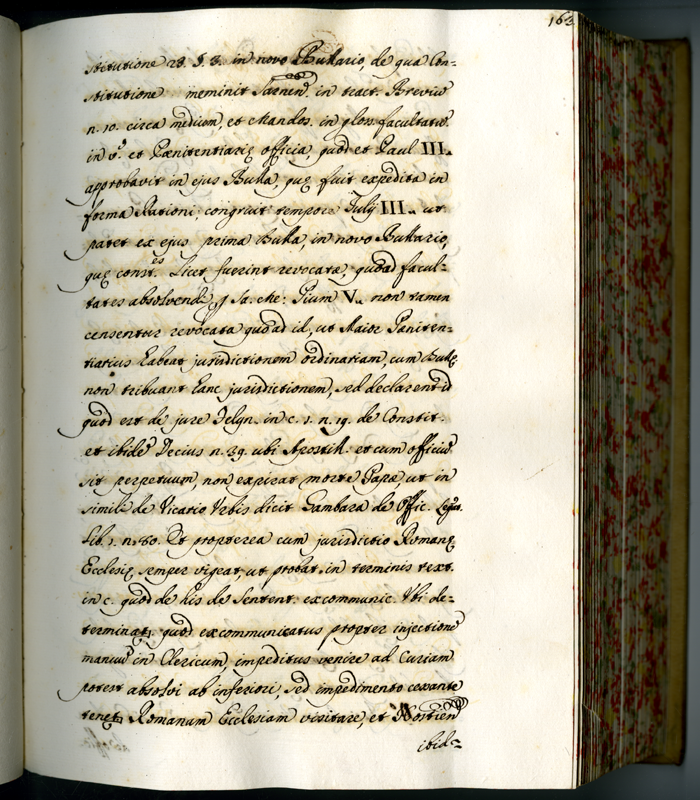 163
stitutione 28. §. 3. in novo Bullario, de qua Con=
stitutione meminit Sarnen. in tract. Breviũ
n. 10. circa medium, et Mandos. in glos. facultatũ
in v.º et Pœnitentiariȩ officia, quod et Paul III.
approbavit in ejus Bulla, quȩ fuit expedita in
forma Rationi, congruit tempore Julij III. ut
patet ex ejus prima Bulla, in novo Bullario,
quȩ const.es Licet fuerint revocatæ, quoad facul=
tates absolvendi, Sa. Me: Pium V. non tamen
censentur revocata quoad id, ut Maior Pœniten=
tiarius habeat jurisdictionem ordinariam, cum Bullȩ
non tribuant hanc jurisdictionem, sed declarent id
quod est de jure in c. 1. n. 19. de Constit.
et ibidẽ Decius n. 39. ubi Apostill. et cum officiũ
sit perpetuum, non expirat morte Papæ, ut in
simili de Vicario Urbis dicit Gambara de Offic. Legati.
lib. 1. n. 80. Et propterea cum jurisdictio Romanȩ
Ecclesiȩ semper vigeat, ut probat. in terminis text.
in c. quod de his de Sentent. excommunic. Ubi de=
terminatȩ. quod excommunicatus propter injectionẽ
manuũ in Clericum, impeditus venire ad Curiam
potest absolvi ab inferiori, sed impedimento cessante
tenet Romanam Ecclesiam visitare, et Hostien
ibid=